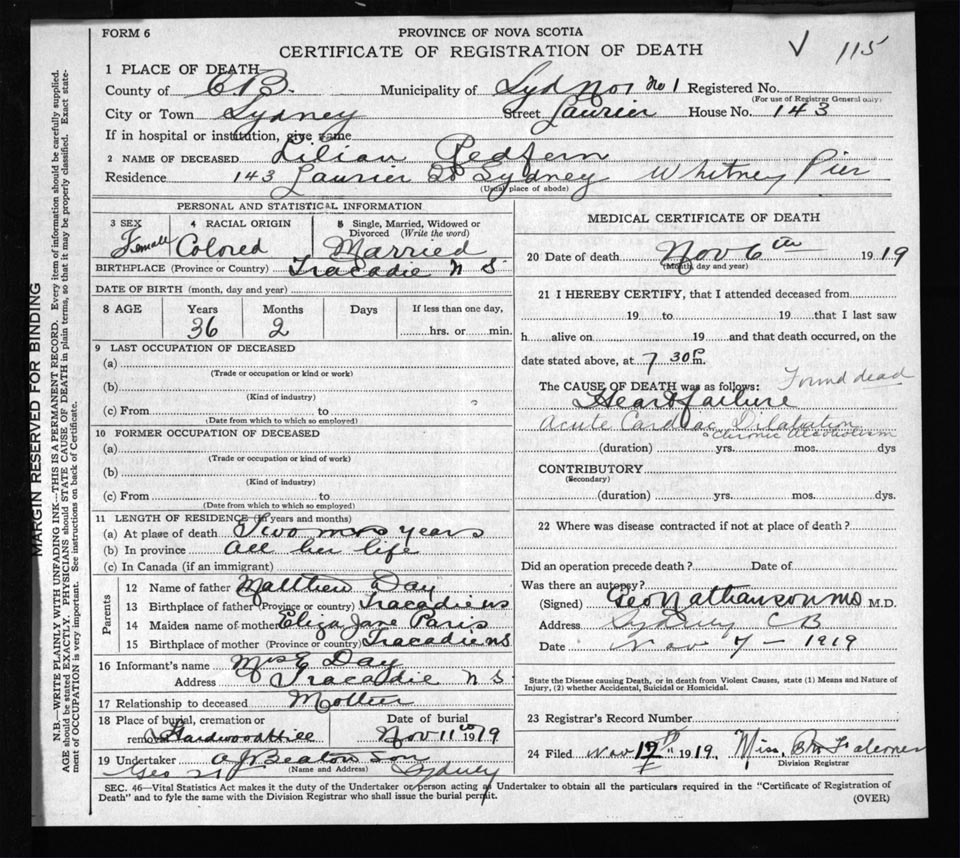 FORM 6
PROVINCE OF NOVA SCOTIA
CERTIFICATE OF REGISTRATION OF DEATH
V 115
1 PLACE OF DEATH
County of CB. Municipality of Sydney No 1 Registered No.
(For use of Registrar General only)
City or Town Sydney Street Laurier House No. 143
If in hospital or institution, give name
2 NAME OF DECEASED Lilian Redfern
Residence 143 Laurier St Sydney Whitney Pier
(Usual place of abode)
PERSONAL AND STATISTICAL INFORMATION
3 SEX Female
4 RACIAL ORIGIN Colored
5 Single, Married, Widowed or Divorced (Write the word) Married
BIRTHPLACE (Province or Country) Tracadie N S
DATE OF BIRTH (month, day and year)
8 AGE Years 36 Months 2 Days If less than one day, hrs. or min.
9 LAST OCCUPATION OF DECEASED
(a)
(Trade or occupation or kind or work)
(b)
(Kind of industry)
(c) From to
(Date from which to which so employed)
10 FORMER OCCUPATION OF DECEASED
(a)
(Trade or occupation or kind of work)
(b)
(Kind of industry)
(c) From to
(Date from which to which so employed)
11 LENGTH OF RESIDENCE (If years and months)
(a) At place of death Two years
(b) In province all her life
(c) In Canada (if an immigrant)
Parents
12 Name of father Matthew Day
13 Birthplace of father (Province or country) Tracadie NS
14 Maiden name of mother Eliza Jane Paris
15 Birthplace of mother (Province or country) Tracadie NS
16 Informant's name Mrs E Day
Address Tracadie N S
17 Relationship to deceased Mother
18 Place of burial, cremation or removal Hardwood Hill
Date of burial Nov 11th 1919
19 Undertaker A J Beaton
(Name and Address) Sydney
MEDICAL CERTIFICATE OF DEATH
20 Date of death Nov 6th 1919
(Month, day and year)
21 I HEREBY CERTIFY, that I attended deceased from
19 to 19 that I last saw
h alive on 19 and that death occurred, on the
date stated above, at 7 30 P.m.
The CAUSE OF DEATH was as follows: Found dead
Heart failure
Acute Cardiac Dilatation
Chronic Alcoholism
(duration) yrs. mos. dys
CONTRIBUTORY
(Secondary)
(duration) yrs. mos. dys.
22 Where was disease contracted if not at place of death?
Did an operation precede death? Date of
Was there an autopsy?
(Signed) Geo Nathanson M.D.
Address Sydney C B
Date Nov 7 - 1919
State the Disease causing Death, or in death from Violent Causes, state (1) Means and Nature of
Injury, (2) whether Accidental, Suicidal or Homicidal.
23 Registrar's Record Number
24 Filed Nov 1919, Miss Falconer
Division Registrar
SEC. 46—Vital Statistics Act makes it the duty of the Undertaker or person acting as Undertaker to obtain all the particulars required in the "Certificate of Registration of
Death" and to fyle the same with the Division Registrar who shall issue the burial permit.
(OVER)
MARGIN RESERVED FOR BINDING
N.B.—WRITE PLAINLY WITH UNFADING INK—THIS IS A PERMANENT RECORD. Every item of information should be carefully supplied.
AGE should be stated EXACTLY. PHYSICIANS should STATE CAUSE OF DEATH in plain terms, so that it may be properly classified. Exact state-
ment of OCCUPATION is very important. See instructions on back of Certificate.